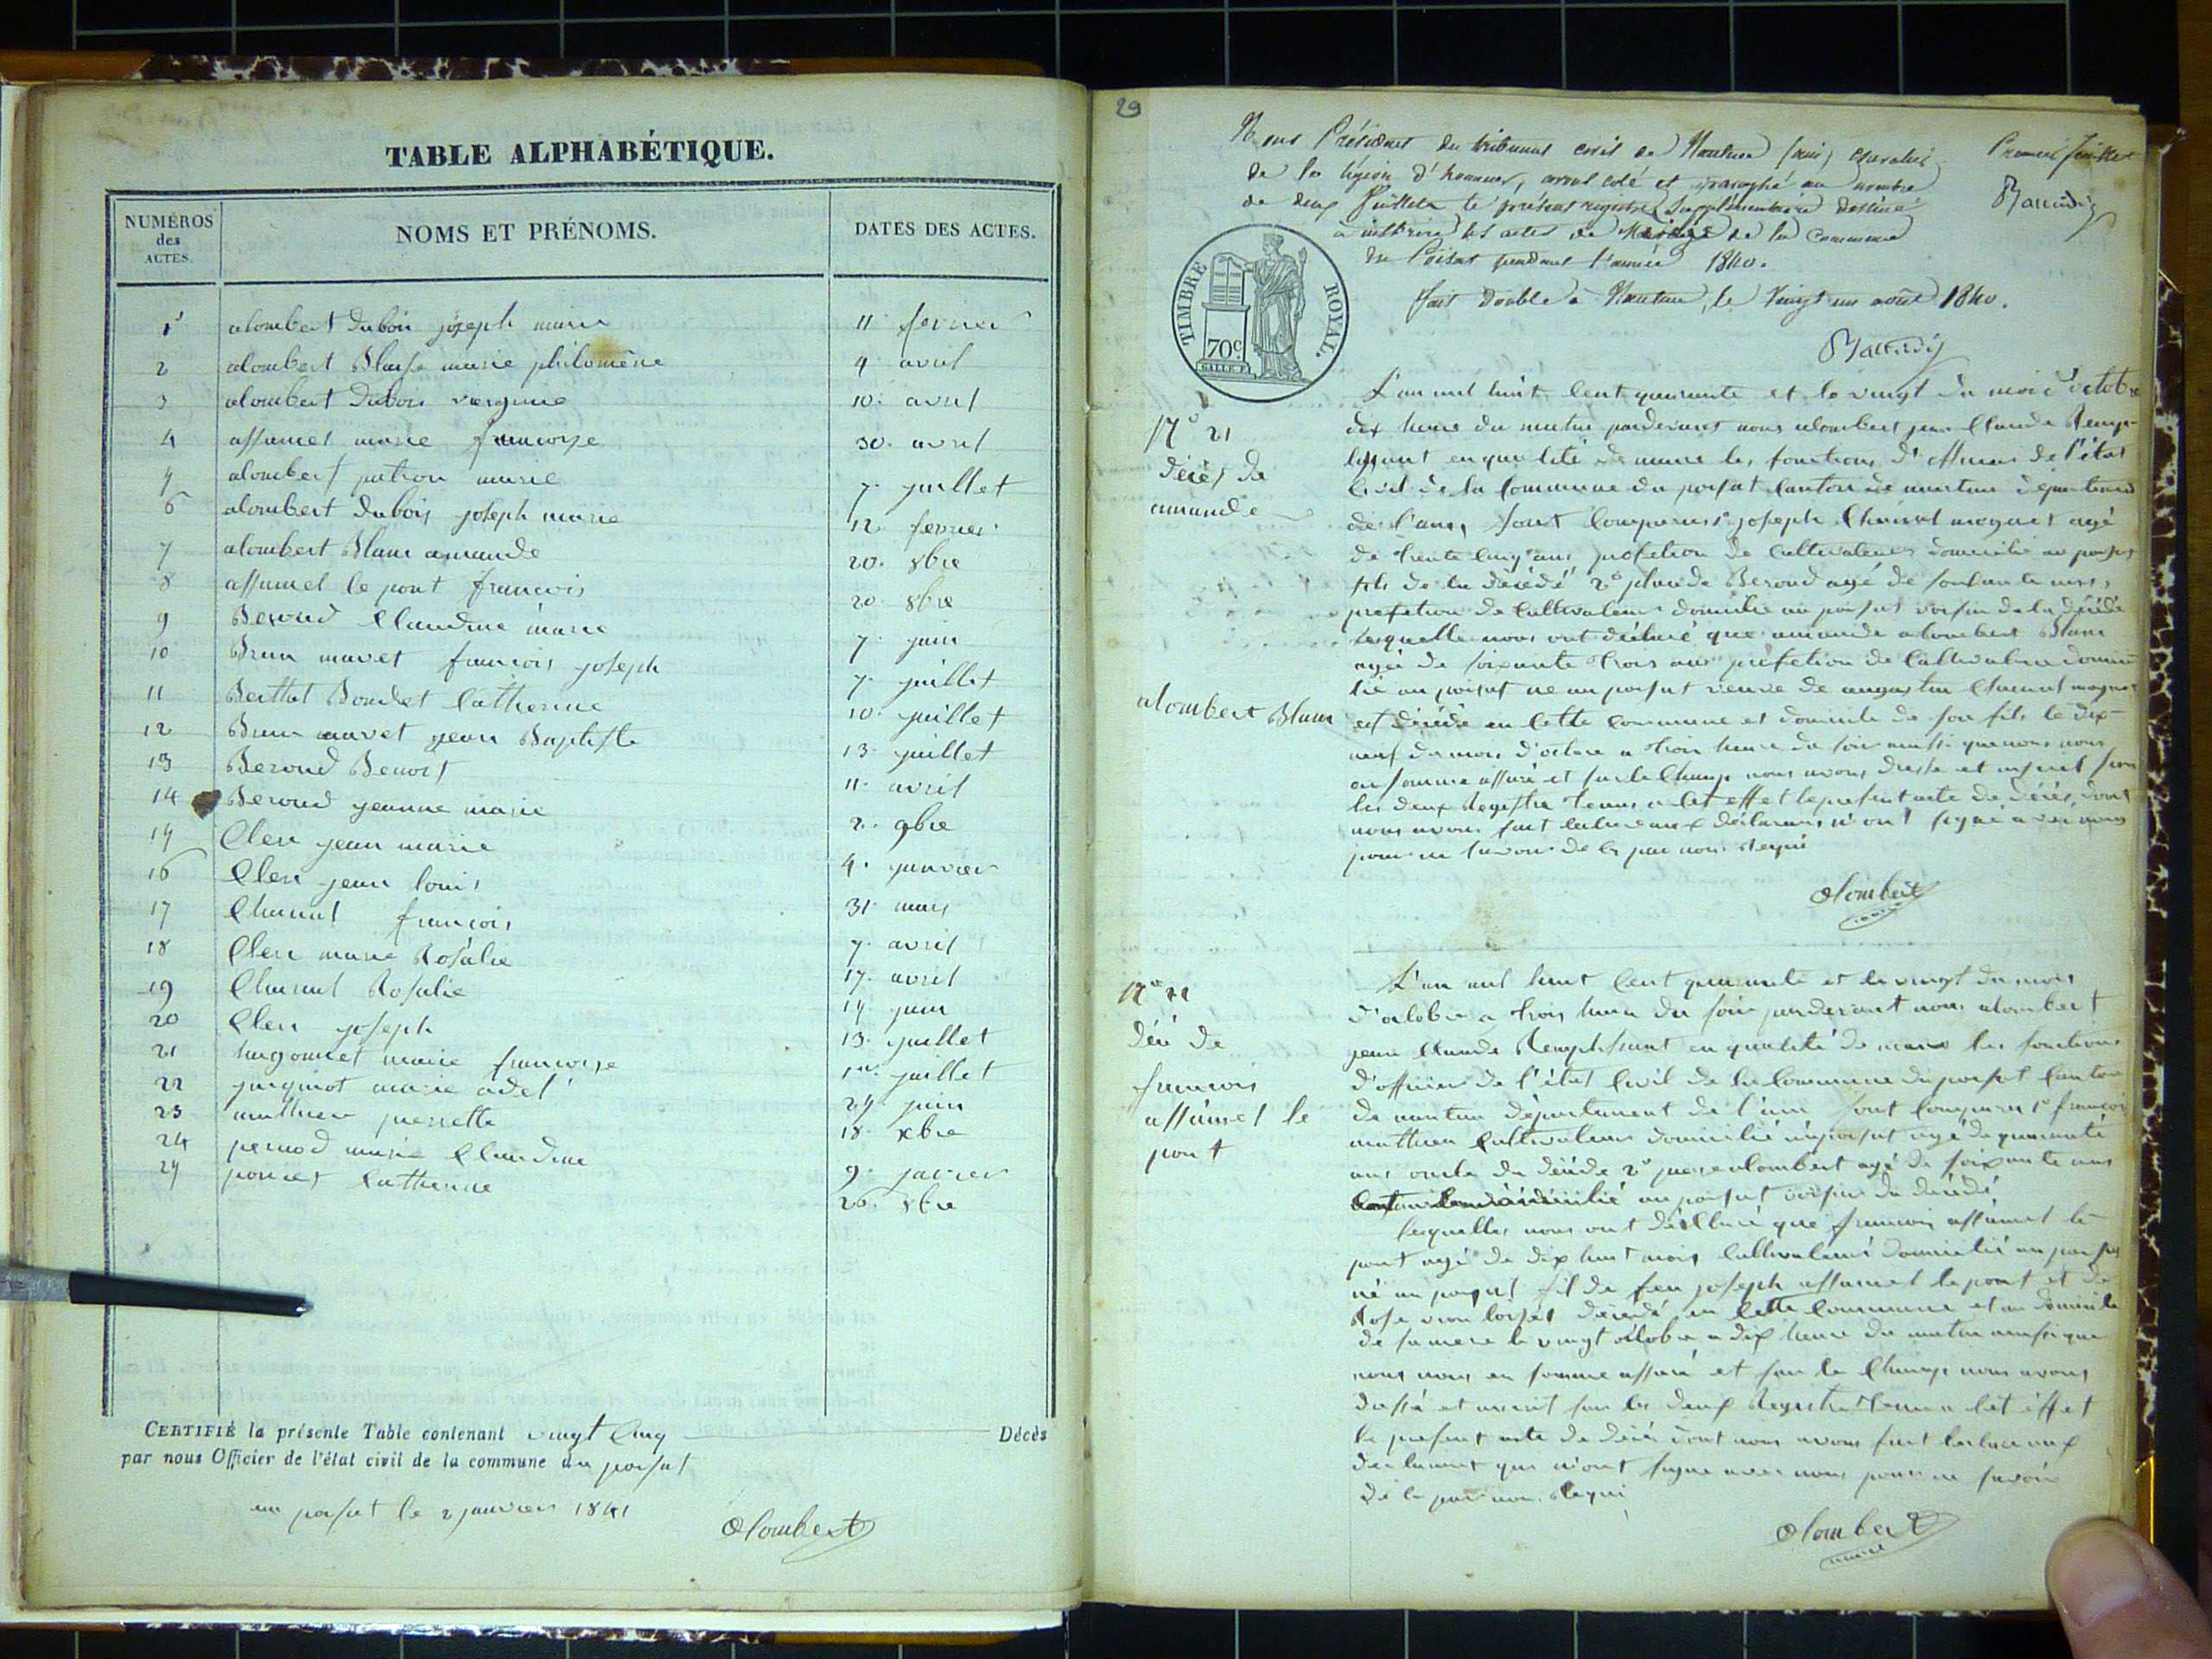 TABLE ALPHABÉTIQUE.
NUMÉROS des ACTES.
NOMS ET PRÉNOMS.
DATES DES ACTES.
1 alombert dubois joseph marie 11 fevrier
2 alombert Blanse marie philomène 4 avril
3 alombert Dubois vergine 10. avril
4 assumel marie francoise 30. avril
5 alombert patron marie 7. juillet
6 alombert dubois joseph marie 12. fevrier
7 alombert Blanc amande 20. 8bre
8 assumel le pont francois 20. 8bre
9 Beroud Claudine marie 7. juin
10 Brun mavet francois joseph 7. juillet
11 Berthet Bondet Catherine 10. juillet
12 Brun mavet jean Baptiste 13. juillet
13 Beroud Benoit 11. avril
14 Beroud jeanne marie 2. 9bre
15 Clerc jean marie 4. janvier
16 Clerc jean louis 31. mars
17 Charnal francois 7. avril
18 Clerc marie Rosalie 17. avril
19 Charnal Rosalie 14. juin
20 Clerc joseph 13. juillet
21 hugonnet marie francoise 1er juillet
22 juiquinot marie adel 24. juin
23 mathieu pierrette 18. xbre
24 pernod marie Claudine 9. javier
25 poncet Catherine 26. 8bre
CERTIFIÉ la présente Table contenant vingt Cinq Décès
par nous Officier de l'état civil de la commune du poisat
au poisat le 2 janvier 1841
alombert
29
Nous Président du tribunal civil de Nantua (ain) chevalier
de la légion d'honneur, avons coté et paraphé au nombre
de deux feuillets le présent registre supplémentaire destiné
à inscrire les actes de de la Commune
du Poisat pendant l'année 1840.
Fait double à Nantua, le vingt un août 1840.
Premier feuillet
TIMBRE ROYAL.
70c
N° 21
décès de
amande
alombert Blanc
L'an mil huit Cent quarante et le vingt du mois d'octobre
dix heures du matin pardevant nous alombert jean Claude Remp-
lissant en qualité de maire les fonctions d'officier de l'état
Civil de la Commune du poisat Canton de nantua departement
de l'ain, sont Comparus 1° joseph Charnal moquet agé
de trente Cinq ans profetion de Cultivateur domicilié au poisat
fils de la décédé 2° Beroud agé de
profetion de Cultivateur domicilié au poisat voisin de la décédé
lesquelles nous ont déclaré que amande alombert Blanc
agée de soixante trois ans profetion de Cultivatrice domici
lié au poisat né au poisat veuve de augustin Charnal moquet
est décédé en Cette Commune et domicile de son fils le dix-
neuf du mois d'octobre a trois heure du soir ainsi que nous nous
en somme assuré et sur le Champ nous avons dressé et inscrit sur
les deux Registre tenus a cet effet le present acte de décès, dont
nous avons fait lecture aux déclarans n'ont signé avec nous
pour ne savoir de la par nous Requi
alombert
N° 22
déé de
francois
assumel le
pont
L'an mil huit Cent quarante et le vingt du mois
d'octobre a trois heure du soir pardevant nous alombert
jean Claude Remplissant en qualité de maire les fonctions
d'officier de l'état Civil de la Commune du poisat Canton
de nantua département de l'ain sont Comparus 1° françois
mathieu Cultivateur domicilié au poisat agé de quarante
ans oncle du décédé 2° pierre alombert agé de soixante ans
au poisat voisin du décédé
lesquelles nous ont déclaré que francois assumel le
pont agé de dix huit mois Cultivateur domicilié au poisat
né au poisat fil de feu joseph assumel le pont et de
Rose décédé en Cette Commune et au domicile
de sa mere le vingt octobre a dix heure du matin ainsi que
nous nous en somme assuré et sur le Champ nous avons
dressé et inscrit sur les deux Registre tenus a cet éffet
le présent acte de décès dont nous avons fait lecture aux
declarant qui n'ont signé avec nous pour ne savoir
de la par nous Requi
alombert